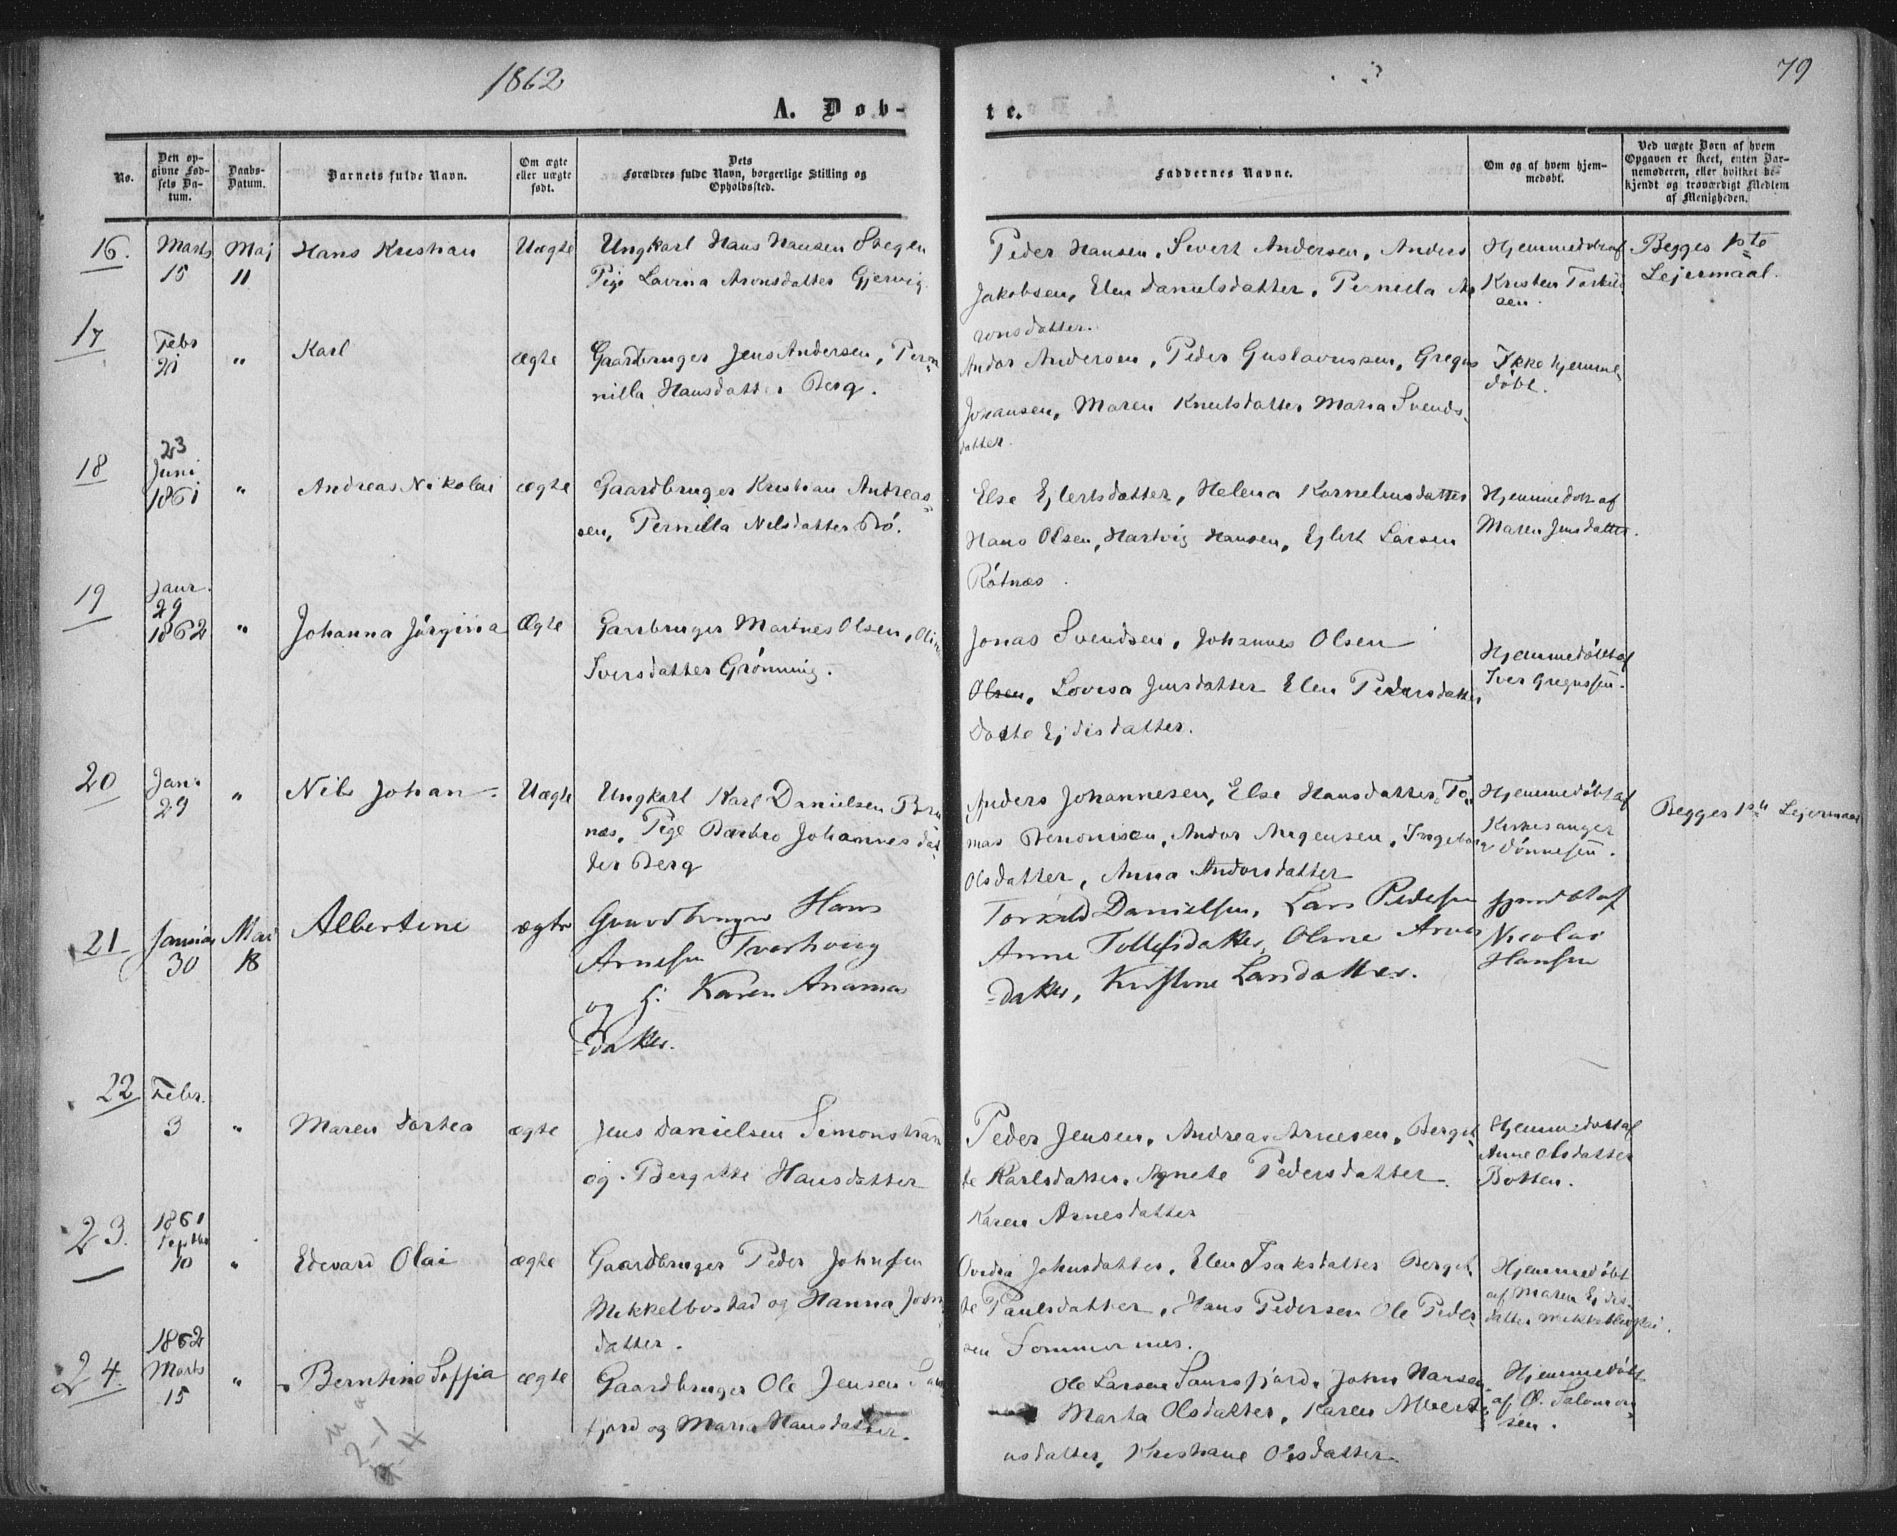 1862
79
A. Døb-
te.
No.
Den op-
givne Fød-
sels Da-
tum.
Daabs-
Datum.
Barnets fulde Navn.
Om ægte
eller uægte
født.
Dets
Forældres fulde Navn, borgerlige Stilling og
Opholdssted.
Faddernes Navne.
Om og af hvem hjem-
medøbt.
Ved uægte Børn af hvem
Opgaven er skeet, enten Bar-
nemoderen, eller hvilket be-
kjendt og troværdigt Medlem
af Menigheden.
16.
Marts
15
Maj
11
Hans Kristian
Uægte
Ungkarl Hans Hansen
Pige Lavina Aronsdatter Gjervig
Peder Hansen, Sivert Andersen, Anders
Jakobsen, Elen Danielsdatter, Pernilla Ar
ronsdatter.
Hjemmedøbt af
Kristen Torkild
sen.
Begges 1ste
Lejermaal.
17
Febr
21
"
Karl
ægte
Gaardbruger Jens Andersen, Per-
nilla Hansdatter Berg.
Andor Andersen, Peder Gustavussen, Gregus
Johansen, Maren Knutsdatter Maria Svends-
datter.
Ikke hjemme-
døbt.
18
23
Juni
1861
"
Andreas Nikolai
ægte
Gaardbruger Kristian Andreas-
sen, Pernilla Nilsdatter Bø.
Else Ejlertsdatter, Helena Kornelius datter
Hans Olsen, Hartvig Hansen, Ejlert Larsen
Røtnæs.
Hjemmedøbt af
Maren Jensdatter.
19
Janr.
29
1862
"
Johanna Jørgina
Ægte
Garrbruger Martnes Olsen, Olina
Iversdatter Grønning.
Jonas Svendsen, Johannes Olsen
Olsen, Lovisa Jensdatter Elen Pedersdatter
Dorte Ejdisdatter.
Hjemmedøbt af
Iver Gregussen.
20
Jan.
29
"
Nils Johan
Uægte
Ungkarl Karl Danielsen
næs, Pige Barbro Johannesdat-
ter Berg
Anders Johannesen, Else Hansdatter, To-
mas Benonisen, Andor Angensen, Ingeborg
Olsdatter, Anna Andorsdatter
Hjemmedøbt af
Kirkesanger
Dønnesen.
Begges 1ste Lejermaal
21
Januar
30
Mai
18
Albertine
ægte
Gaardbruger Hans
Arnesen Tverhvig
og H. Karen Ananias
-datter.
Torkild Danielsen, Lars Pedersen
Anne Tollefsdatter, Oline Arnes
-datter, Kristine Larsdatter.
Hjemdøbt af
Nicolai
Hansen
22
Febr.
3
"
Maren Dortea
ægte
Jens Danielsen Simonstran
og Bergitte Hansdatter
Peder Jensen, Andreas Arnesen, Bergit-
te Karlsdatter, Agnete Pedersdatter
Karen Arnesdatter
Hjemmedøbt af
Anne Olsdatter
Botten.
23.
1861
Septbr
10
"
Edevard Olai
ægte
Gaardbruger Peder Johnsen
Mikkelbostad og Hanna John
datter.
Ovedia Johnsdatter, Elen Isaksdatter Bergit
te Paulsdatter, Hans Pedersen Ole Peder-
sen Sommernes.
Hjemmedøbt
af Maren Ejdis-
datter
24.
1862
Marts
15
"
Berntine Soffia
ægte
Gaardbruger Ole Jensen Saur
fjord og Maria Hansdatter.
Ole Larsen Saursfjord, John Hansen
Marta Olsdatter, Karen Albert-
usdatter, Kristiane Olsdatter
Hjemmedøbt
af O. Salomon-
sen.
2-1